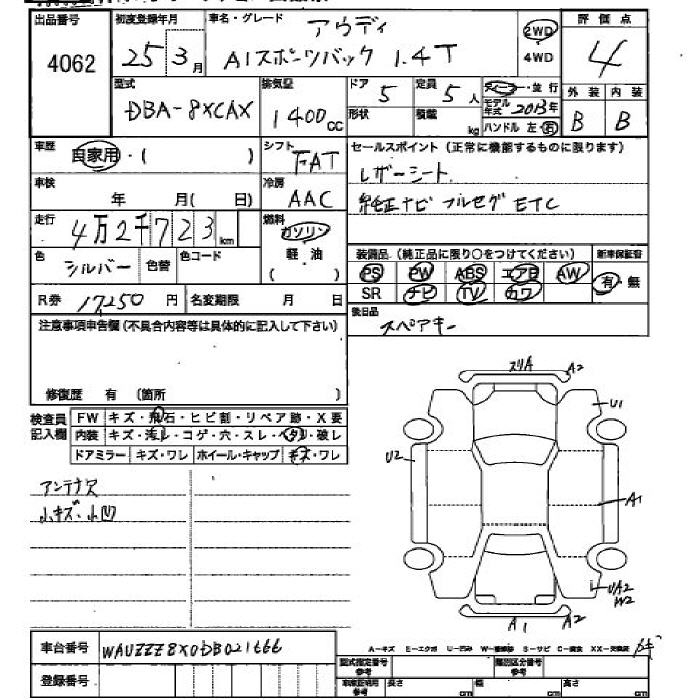 出品番号 初度登録年月 車名・グレード アウディ 2WD 評価点
4062 25年3月 A1スポーツバック 1.4T 4WD 4
型式 排気量 ドア 定員 ディーラー・並行 外装 内装
DBA-8XCAX 1400cc 5 5人 モデル年式 2013年 B B
形状 積載 kg ハンドル 左・右
車歴 自家用・( ) シフト FAT セールスポイント (正常に機能するものに限ります)
車検 年 月( 日) 冷房 AAC レザーシート
純正ナビ フルセグ ETC
走行 4万2千723km 燃料 ガソリン
軽・油
( )
色 シルバー 色替 色コード 装備品(純正品に限り○をつけてください) 新車保証書
PS PW ABS エアB AW 有・無
R券 17,250円 名変期限 月 日 SR ナビ TV カワ
注意事項申告欄(不具合内容等は具体的に記入して下さい) 後日品
スペアキー
修復歴 有 (箇所 )
検査員記入欄 FW キズ・飛石・ヒビ割・リペア跡・X要
内装 キズ・汚れ・コゲ・穴・スレ・ヘタリ・破レ
ドアミラー キズ・ワレ ホイール・キャップ キズ・ワレ
アンテナ欠
小キズ・小凹
スリA A2
U1
U2
A1
UA2
W2
A1 A2
車台番号 WAUZZZ8X0DB021666
A-キズ E-エクボ U-凹み S-サビ C-腐食 XX-交換済
登録番号 型式指定番号 類別区分番号
長さ cm 幅 cm 高さ cm